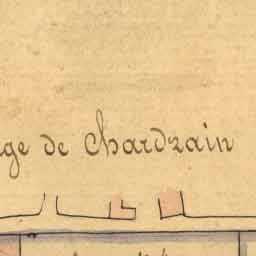 ge de Chardzain